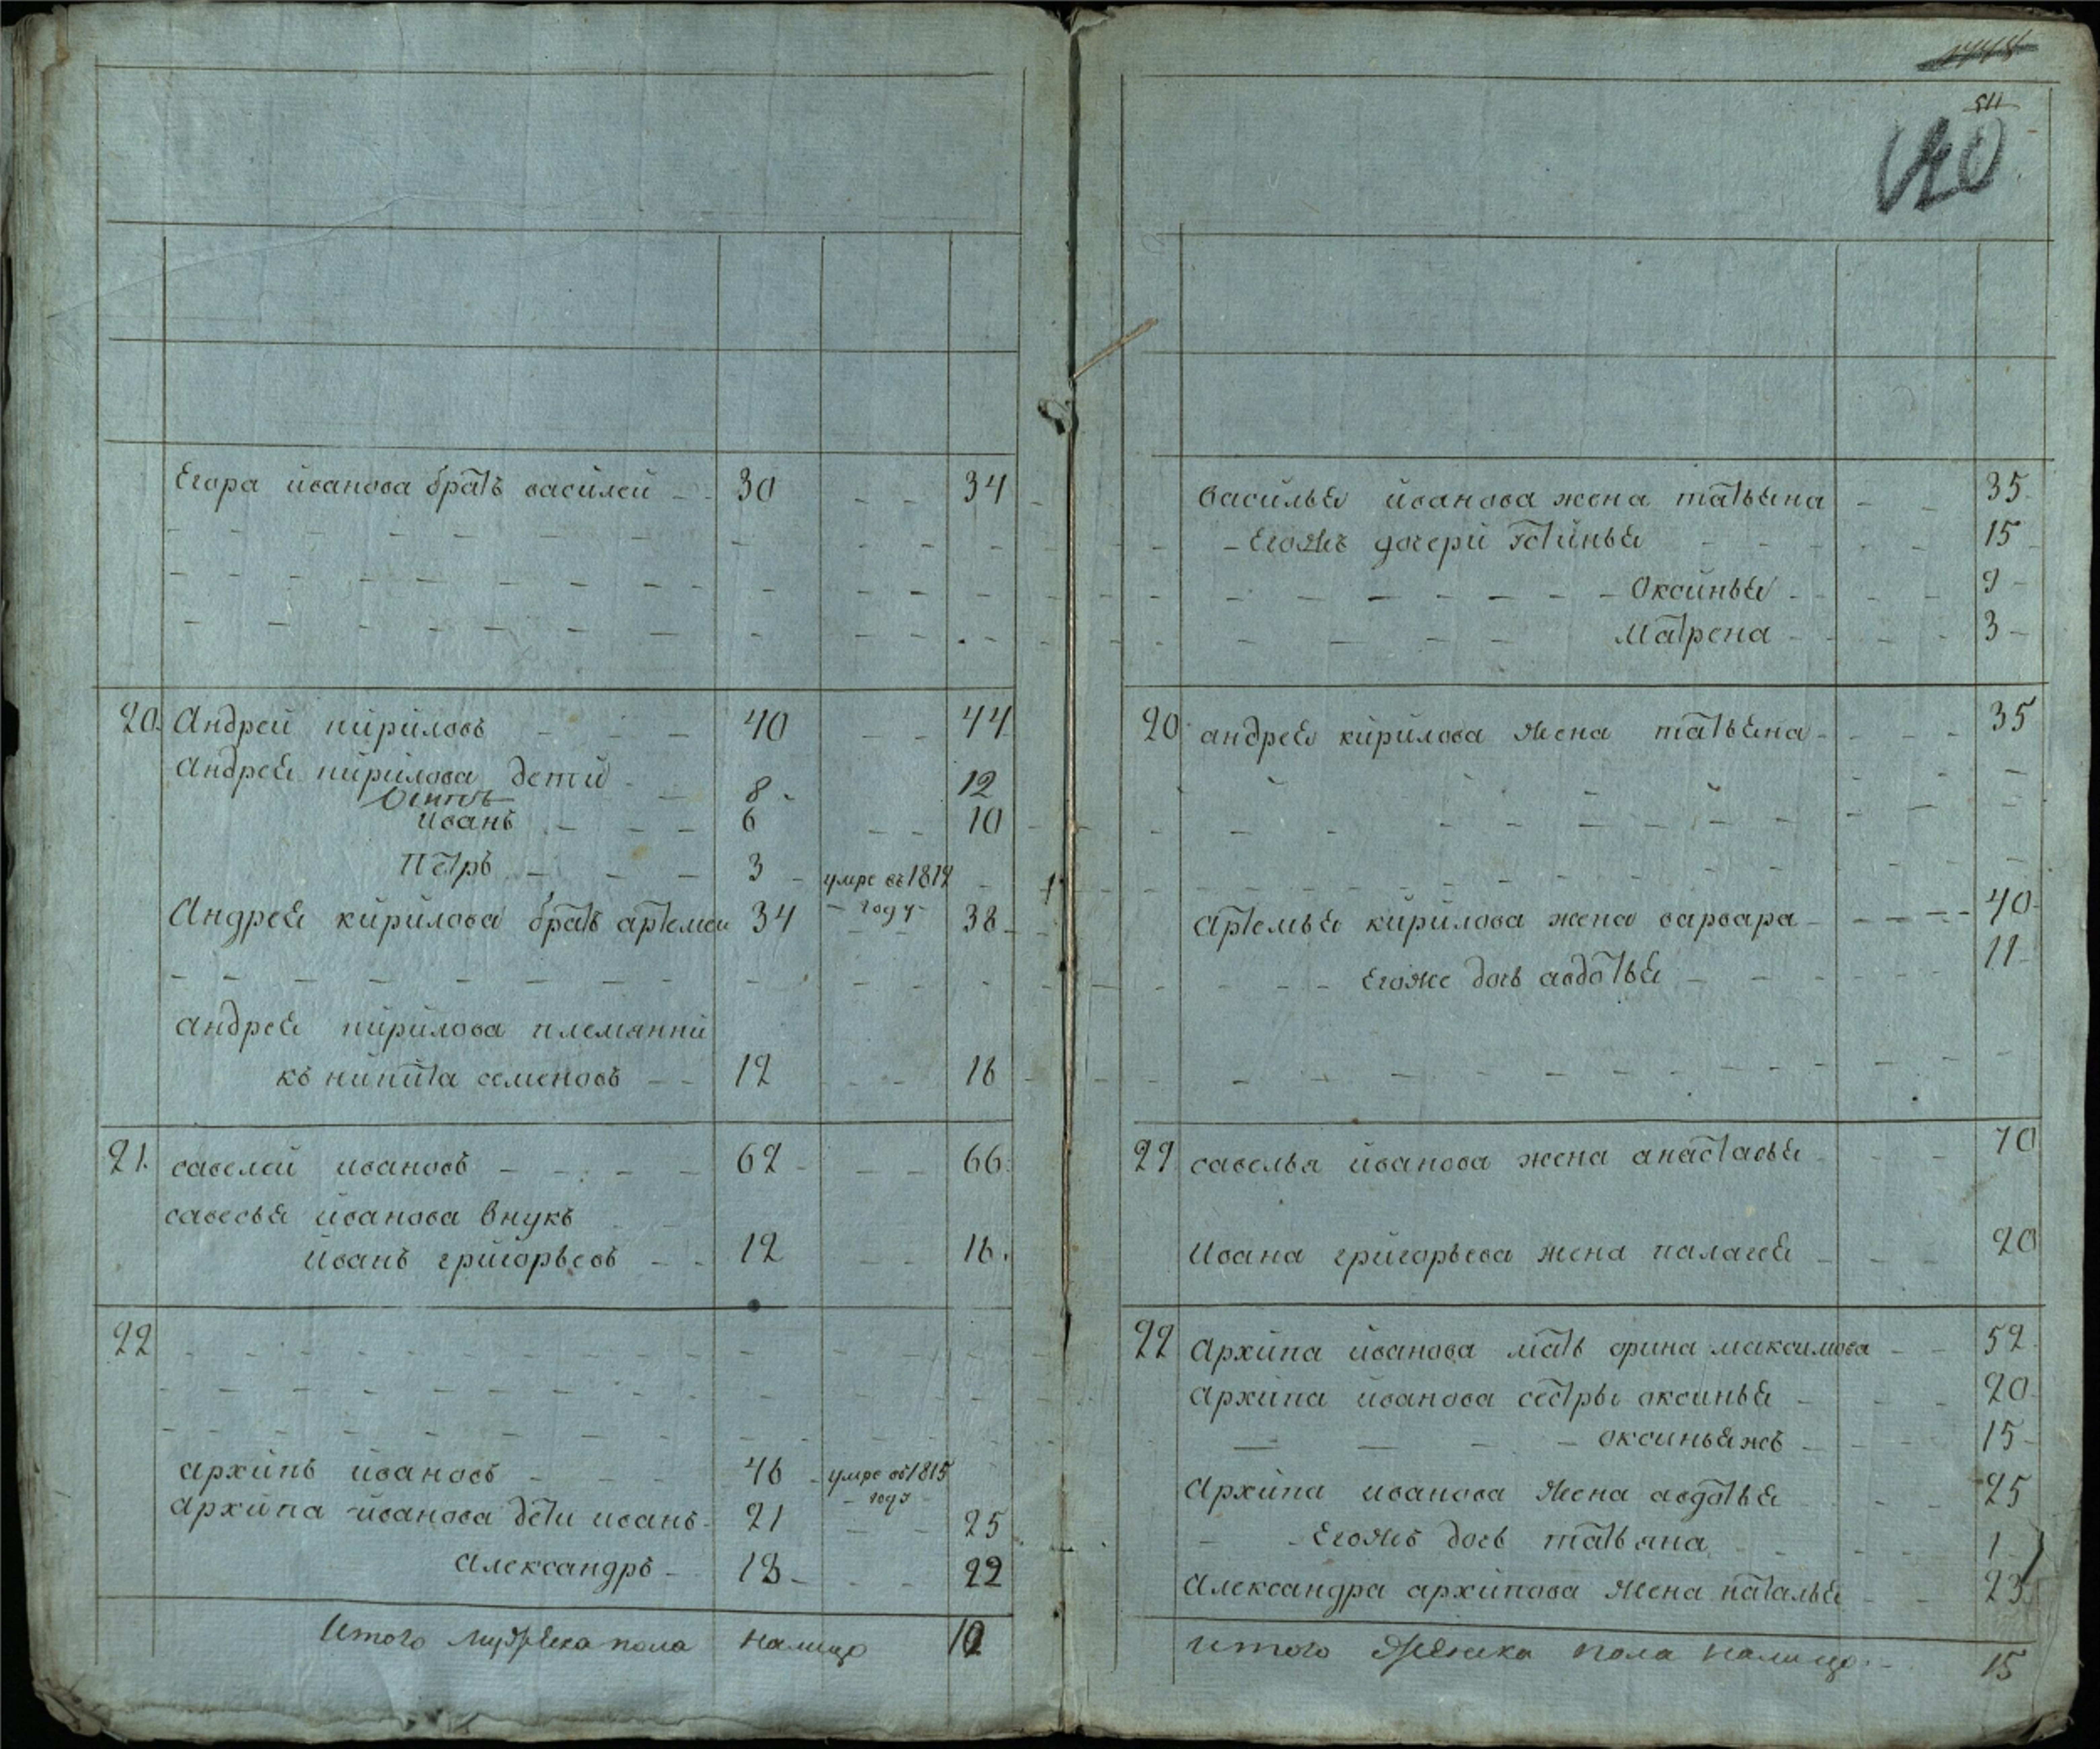 Егора иванова братъ василей 30 34
20. Андрей кириловъ 40 44
Андрея кирилова дети
8 12
иванъ 6 10
Петръ 3 умре въ 1812
году
Андрея кирилова братъ артемеи 34 38
андрея кирилова племянни
къ никита семеновъ 12 16
21. савелей ивановъ 62 66
савелья иванова внукъ
иванъ григорьевъ 12 16.
22
архипъ ивановъ 46 умре въ 1815
году
архипа иванова дети иванъ 21 25
александръ 18 22
Итого мужеска пола налицо
511
василья иванова жена татьяна 35
Егожъ дочери устинья 15
оксинья 9
матрена 3
20 андрея кирилова жена татьяна 35
артемья кирилова жена варвара 40
Егоже дочь авдотья 11
21 савелья иванова жена анастасья 70
Ивана григорьева жена палагея 20
22 Архипа иванова мать орина максимова 52
архипа иванова сестры оксинья 20
оксиньяжъ 15
Архипа иванова жена авдотья 25
Егожъ дочь татьяна 1
Александра архипова жена наталья 23
итого женска пола налицо 15